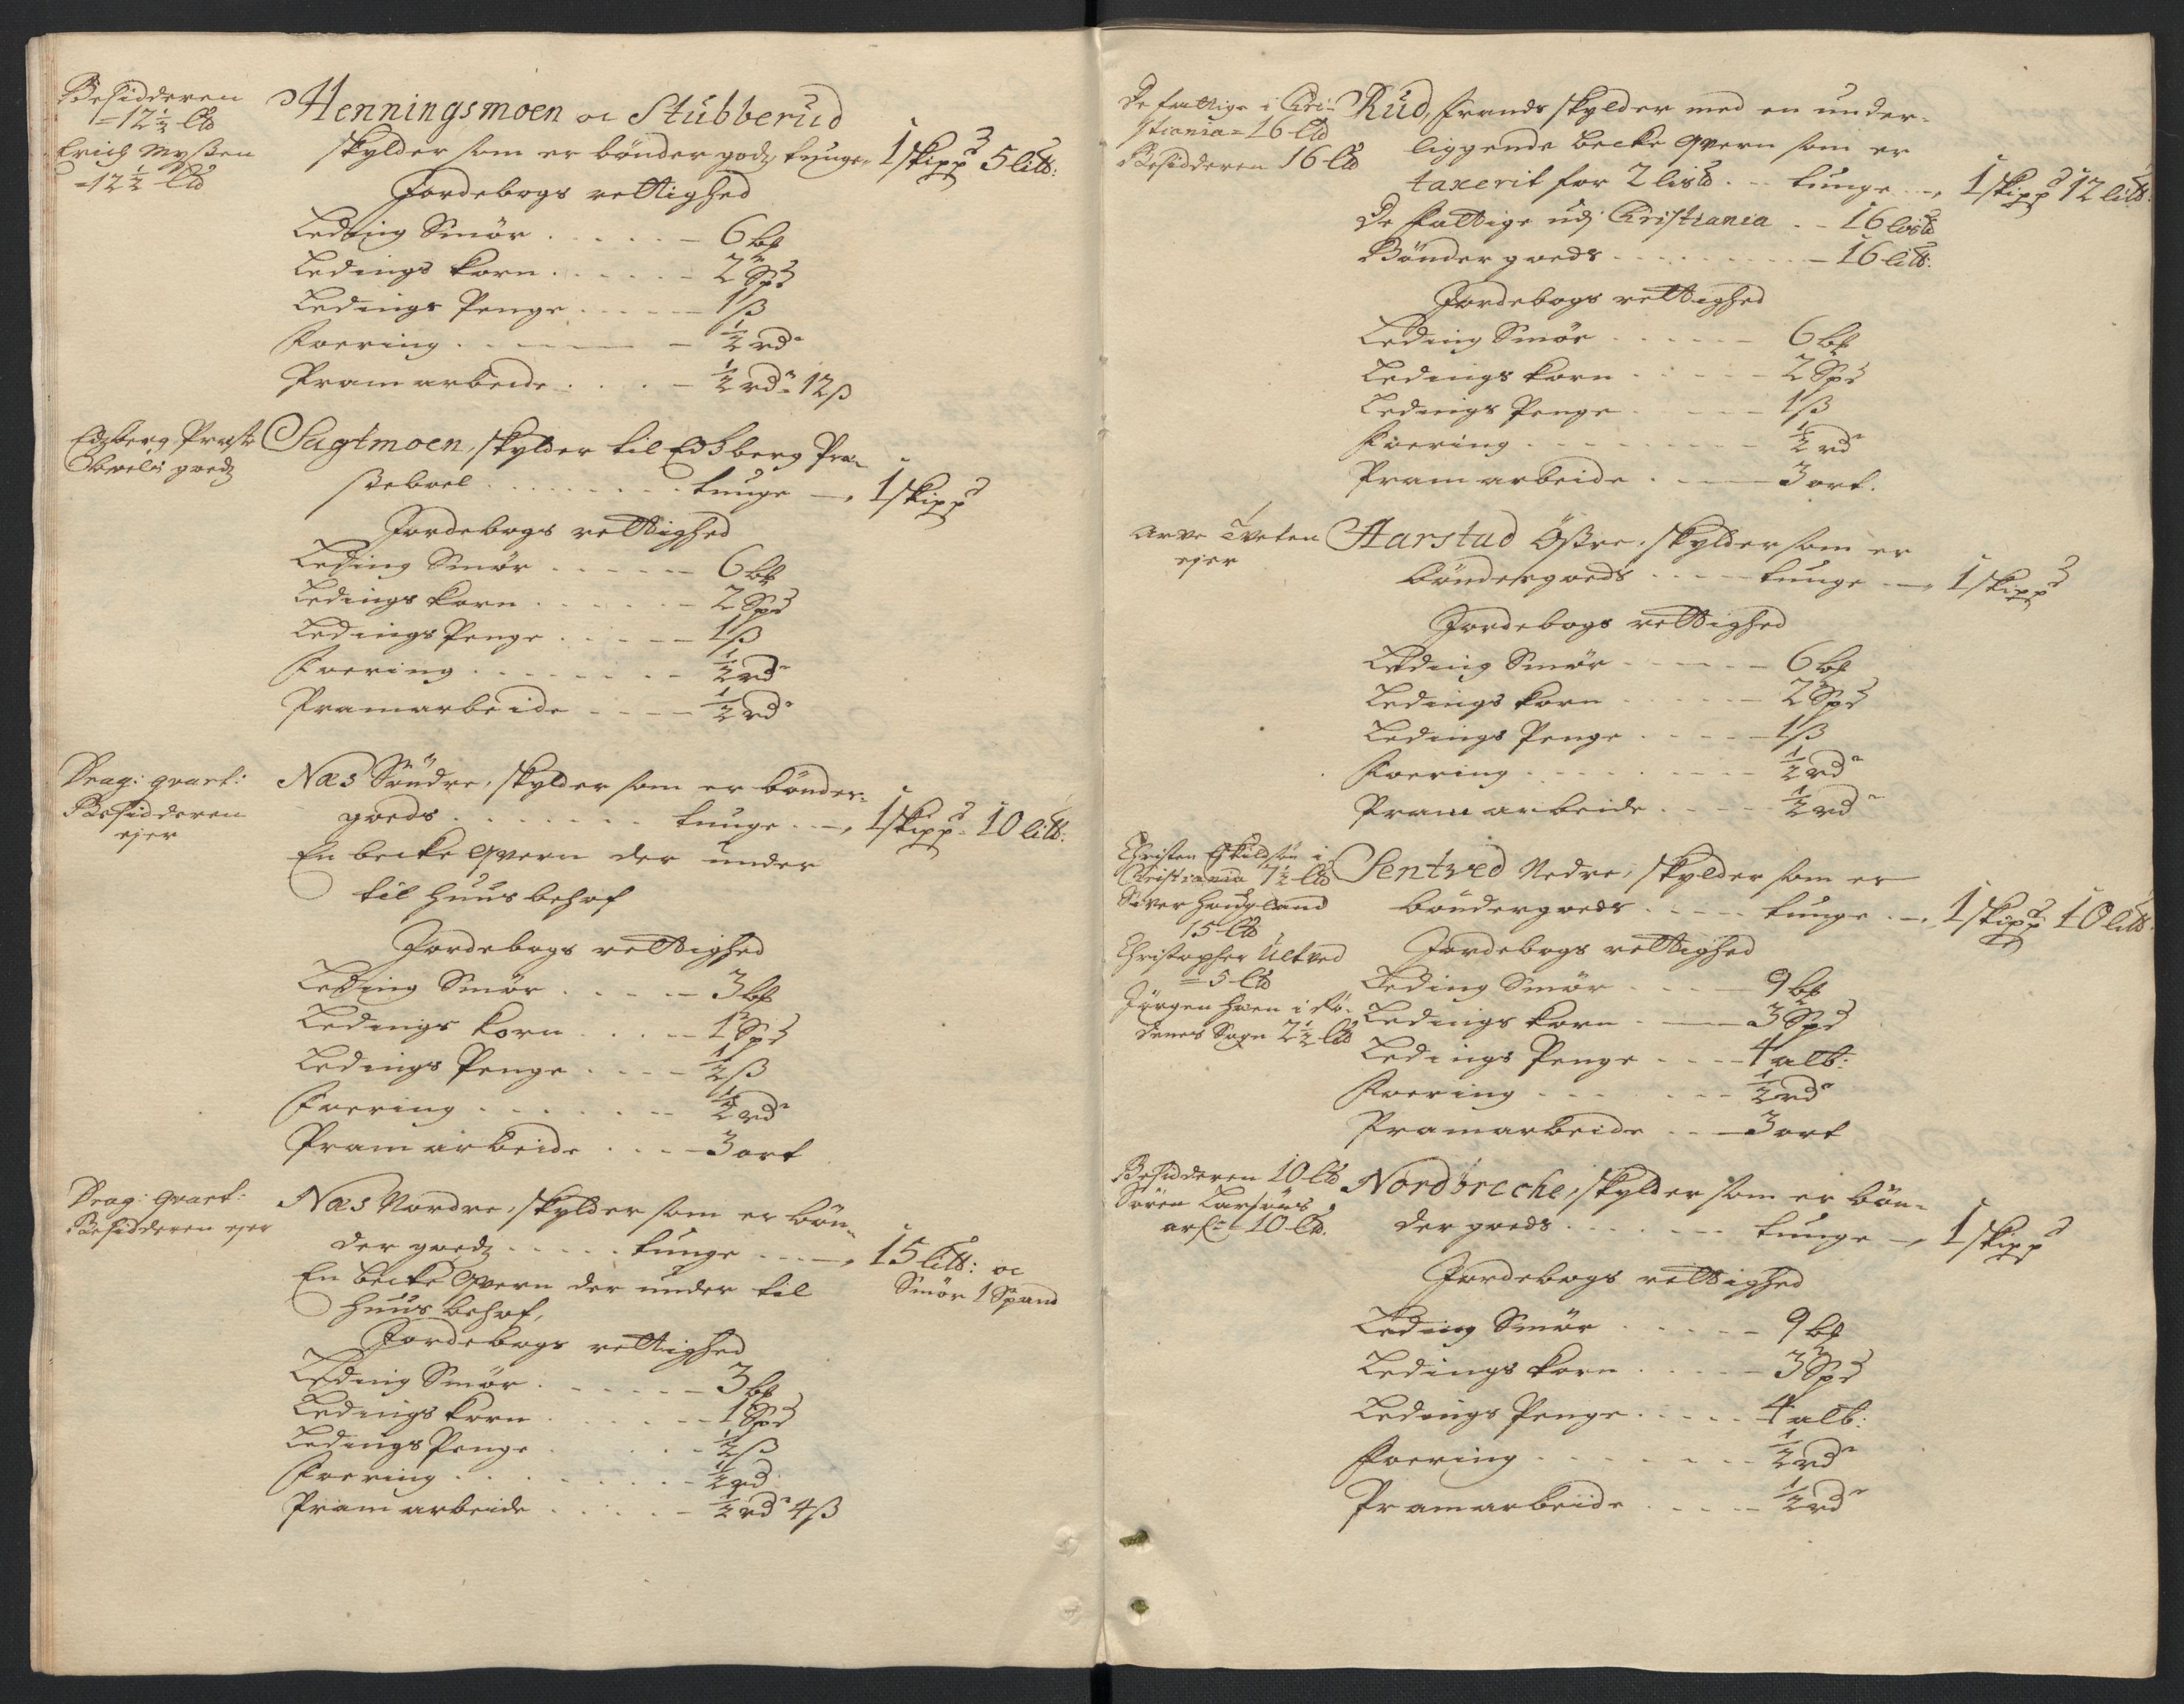 Besidderen
= 12 ½ ltd
Erich Myßen
= 12 ½ ltd
Henningsmoen oc Stubberud
skylder som er bönder godz tunge 1 skippd 5 litt:
Jordebogs rettighed
Leding Smör 6 bß
Ledings korn 2 Spd
Ledings Penge 1 ß
Foering ½ rd
Pramarbeide ½ rd 12 ß
Edzberg Præste
boels godz
Sagtmoen, skylder til Edsberg Præ-
steboel tunge 1 skippd
Jordebogs rettighed
Leding Smör 6 bß
Ledings korn 2 Spd
Ledings Penge 1 ß
Foering ½ rd
Pramarbeide ½ rd
Drag: qvart:
Besidderen
ejer
Næs Söndre, skylder som er bönder-
goeds tunge 1 skippd 10 litt:
En becke qvern der under
til huus behof
Jordebogs rettighed
Leding Smör 3 bß
Ledings korn 1 Spd
Ledings Penge ½ ß
Foering ½ rd
Pramarbeide 3 ort
Drag: qvart:
Besidderen ejer
Næs Nordre, skylder som er bön-
der goedz tunge 15 litt: oc
Smör 1 Spand
En becke qvern der under til
huus behof,
Jordebogs rettighed
Leding Smör 3 bß
Ledings korn 1 Spd
Ledings Penge ½ ß
Foering ½ rd
Pramarbeide ½ rd 4 ß
De fattige i Chri-
stiania = 16 ltd
Besidderen 16 ltd
Rud, Frands skylder med en under-
liggende becke qvern som er
taxerit for 2 lisd tunge 1 skippd 12 litt:
De Fattige udj Christiania 16 lisd
Bönder goeds 16 litt:
Jordebogs rettighed
Leding Smör 6 bß
Ledings korn 2 Spd
Ledings Penge 1 ß
Foering ½ rd
Pramarbeide 3 ort.
Arve Tveten
ejer
Harstad Östre, skylder som er
böndergoeds tunge 1 skippd
Jordebogs rettighed
Leding Smör 6 bß
Ledings korn 2 Spd
Ledings Penge 1 ß
Foering ½ rd
Pramarbeide ½ rd
Christen Eskildsön i
Christiania 7 ½ ltd
Siver Hougland
15 ltd
Christopher Ultved
= 5 ltd
Jörgen Hoen i Rö-
denes Sogn 2 ½ ltd
Sentved Nedre, skylder som er
böndergoeds tunge 1 skippd 10 litt:
Jordebogs rettighed
Leding Smör 9 bß
Ledings korn 3 Spd
Ledings Penge 4 alb:
Foering ½ rd
Pramarbeide 3 ort
Besidderen 10 ltd
Sören Larsöns
arf: = 10 ltd.
Nordbreche, skylder som er bön-
der goeds tunge 1 skippd
Jordebogs rettighed
Leding Smör 9 bß
Ledings korn 3 Spd
Ledings Penge 4 alb:
Foering ½ rd
Pramarbeide ½ rd